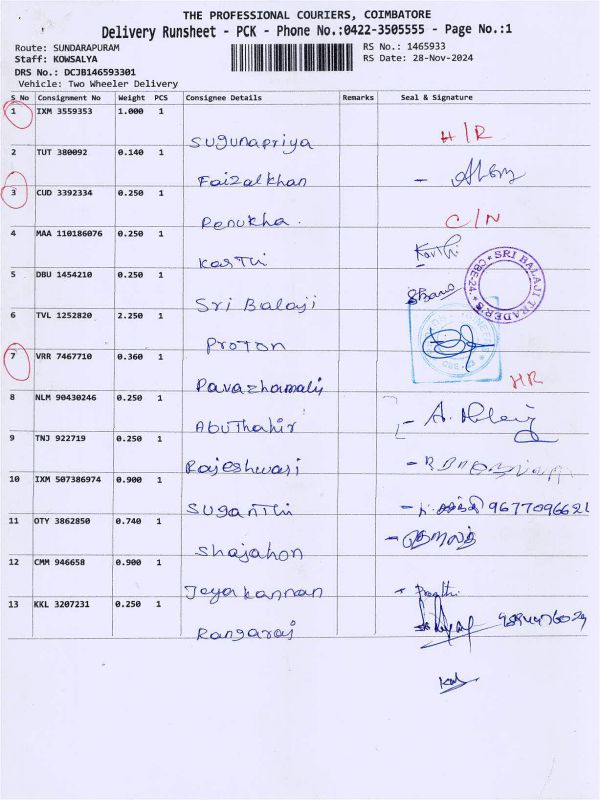 THE PROFESSIONAL COURIERS, COIMBATORE
Delivery Runsheet - PCK - Phone No.:0422-3505555 - Page No.:1
Route: SUNDARAPURAM RS No.: 1465933
Staff: KOWSALYA RS Date: 28-Nov-2024
DRS No.: DCJB146593301
Vehicle: Two Wheeler Delivery
S No Consignment No Weight PCS Consignee Details Remarks Seal & Signature
1 IXM 3559353 1.000 1
Sugunapriya H/R
2 TUT 380092 0.140 1
Faizalkhan
3 CUD 3392334 0.250 1
Renukha. C/N
4 MAA 110186076 0.250 1
Karthi
5 DBU 1454210 0.250 1
Sri Balaji SRI BALAJI TRADERS CBE-24
6 TVL 1252820 2.250 1
Proton
7 VRR 7467710 0.360 1
Pavazhamalli HR
8 NLM 90430246 0.250 1
Abuthahir
9 TNJ 922719 0.250 1
Rajeshwari
10 IXM 507386974 0.900 1
Suganthi 9677096621
11 OTY 3862850 0.740 1
Shajahon
12 CMM 946658 0.900 1
Jeyakannan
13 KKL 3207231 0.250 1
Rangaraj